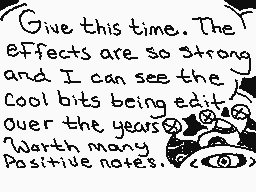 Give this time. The
effects are so strong
and I can see the
cool bits being edit
over the years
Worth many
Positive notes.